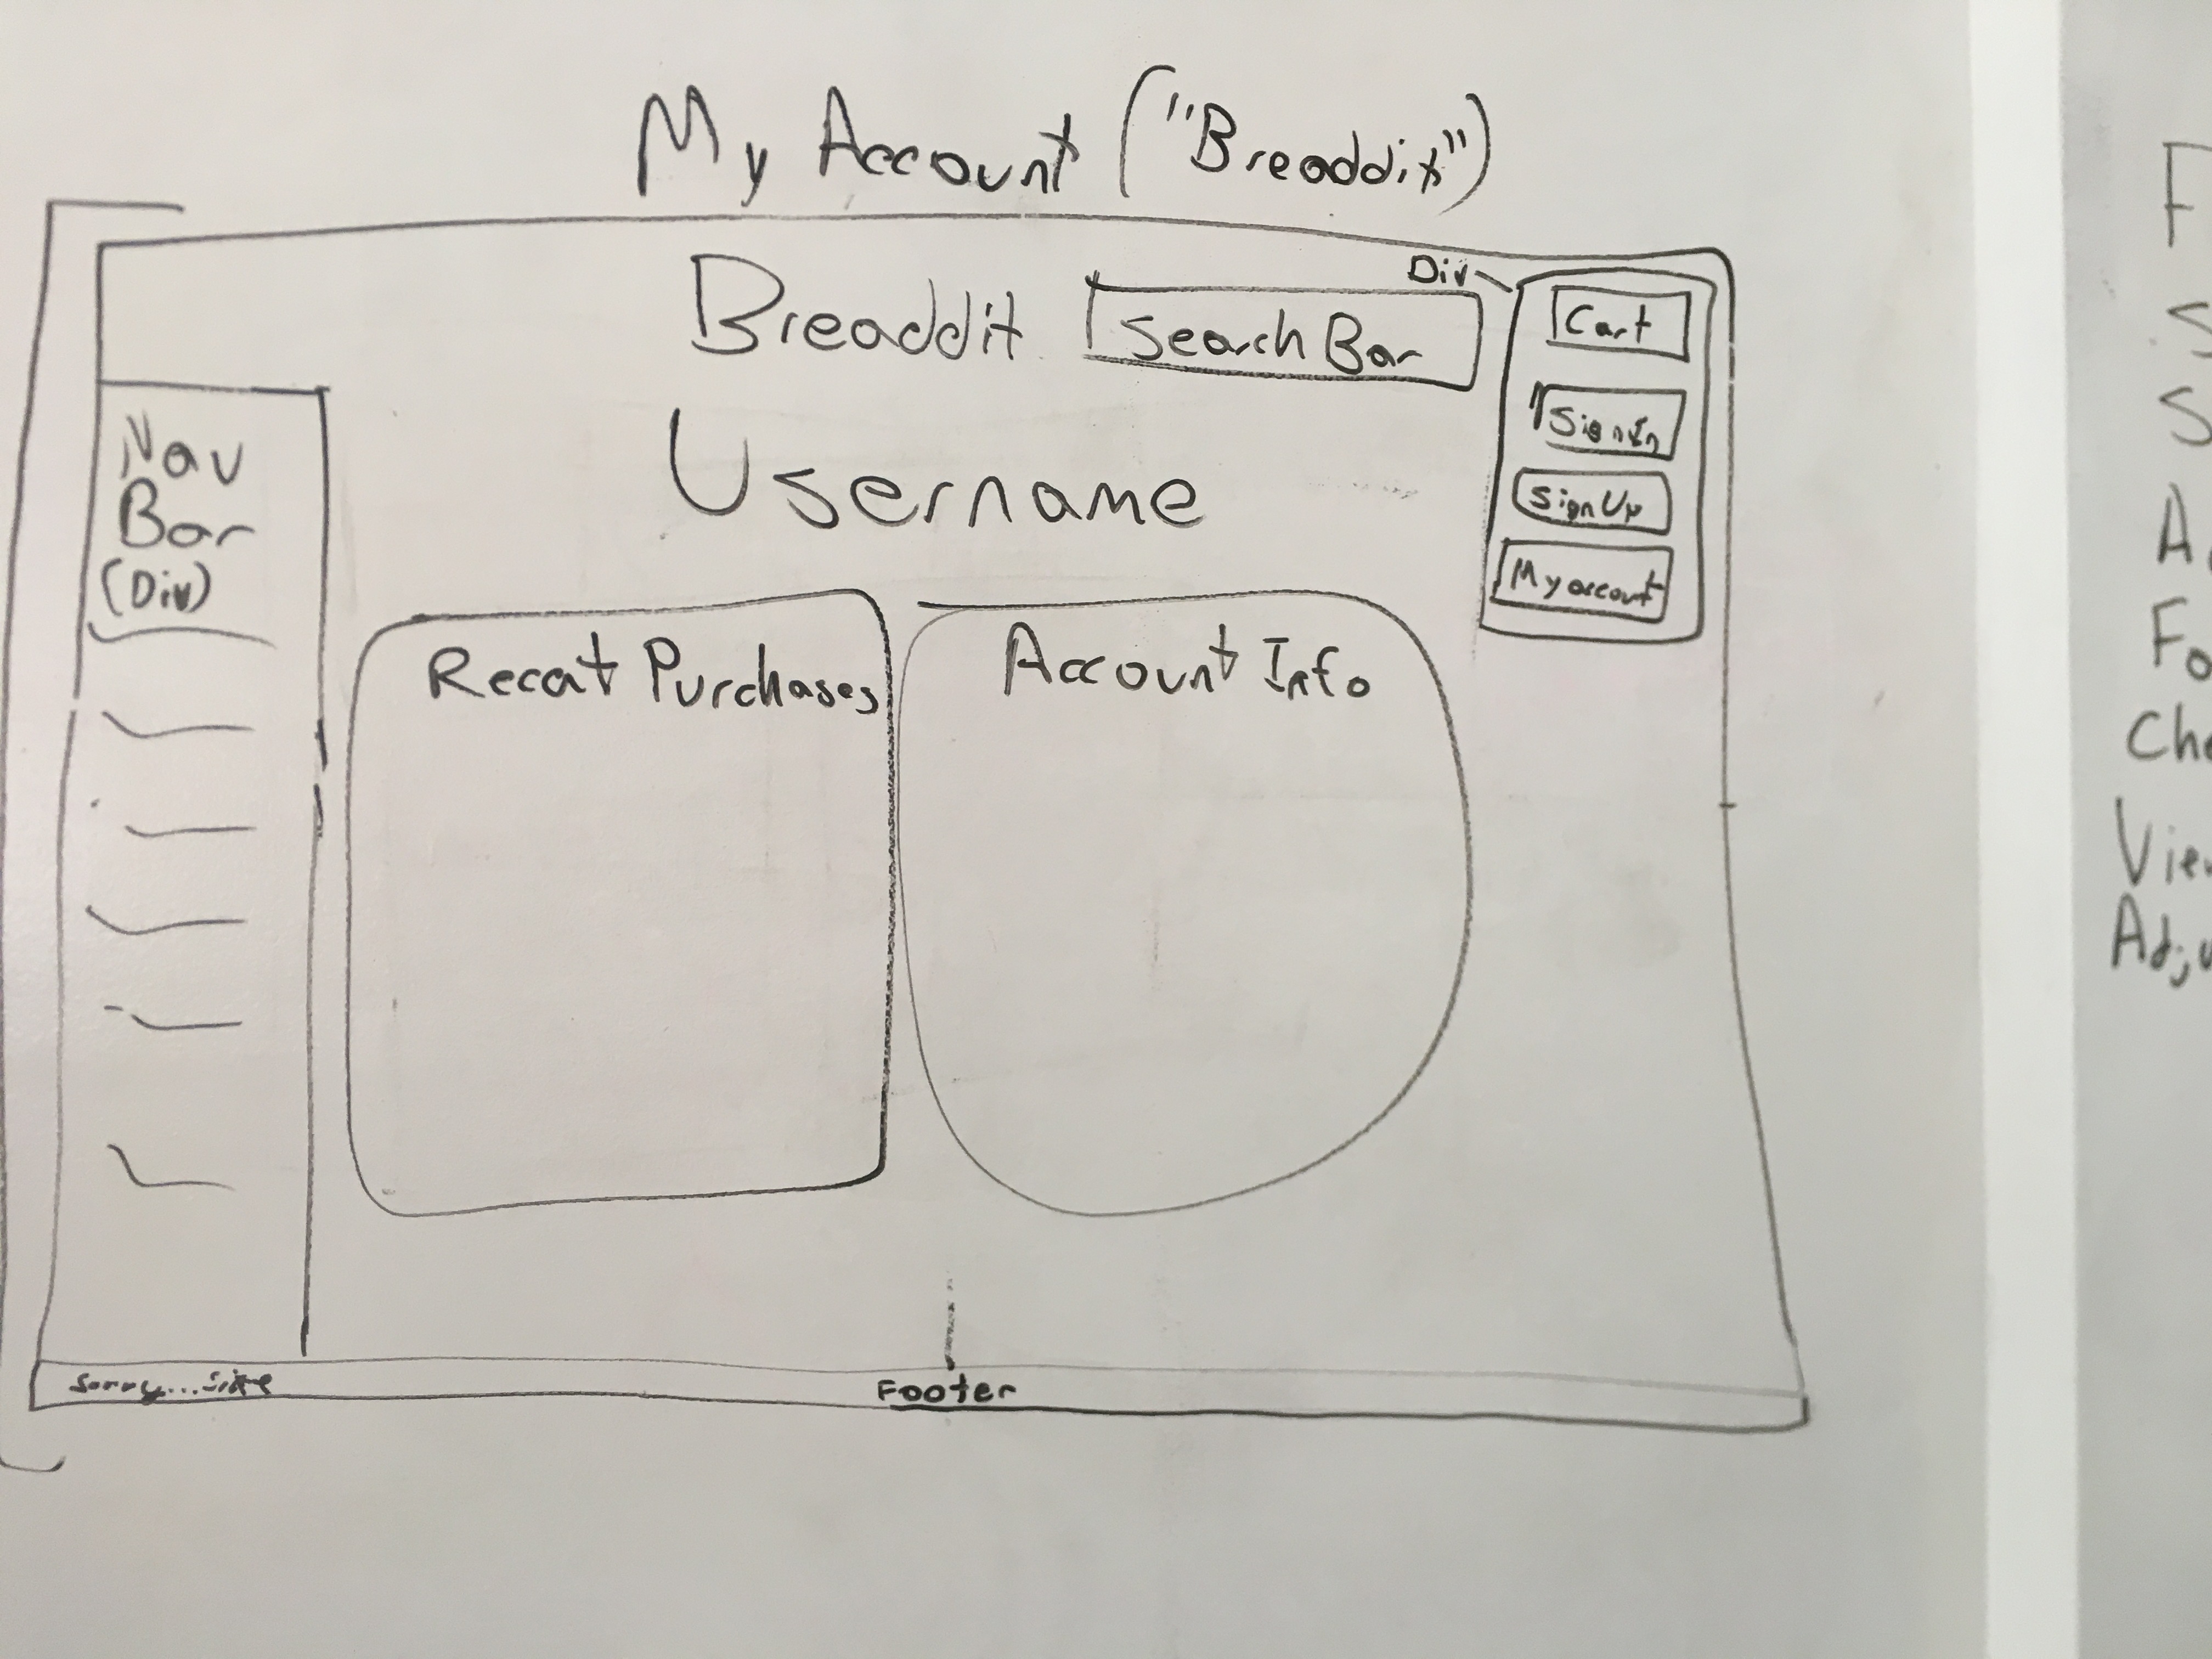 My Account ("Breaddit")
Breaddit
Search Bar
Div
Cart
Sign In
Sign Up
My account
Username
Nav
Bar
(Div)
Recat Purchases
Account Info
Sorry...
Footer
F
S
S
A
Fo
Che
Vie
Adju